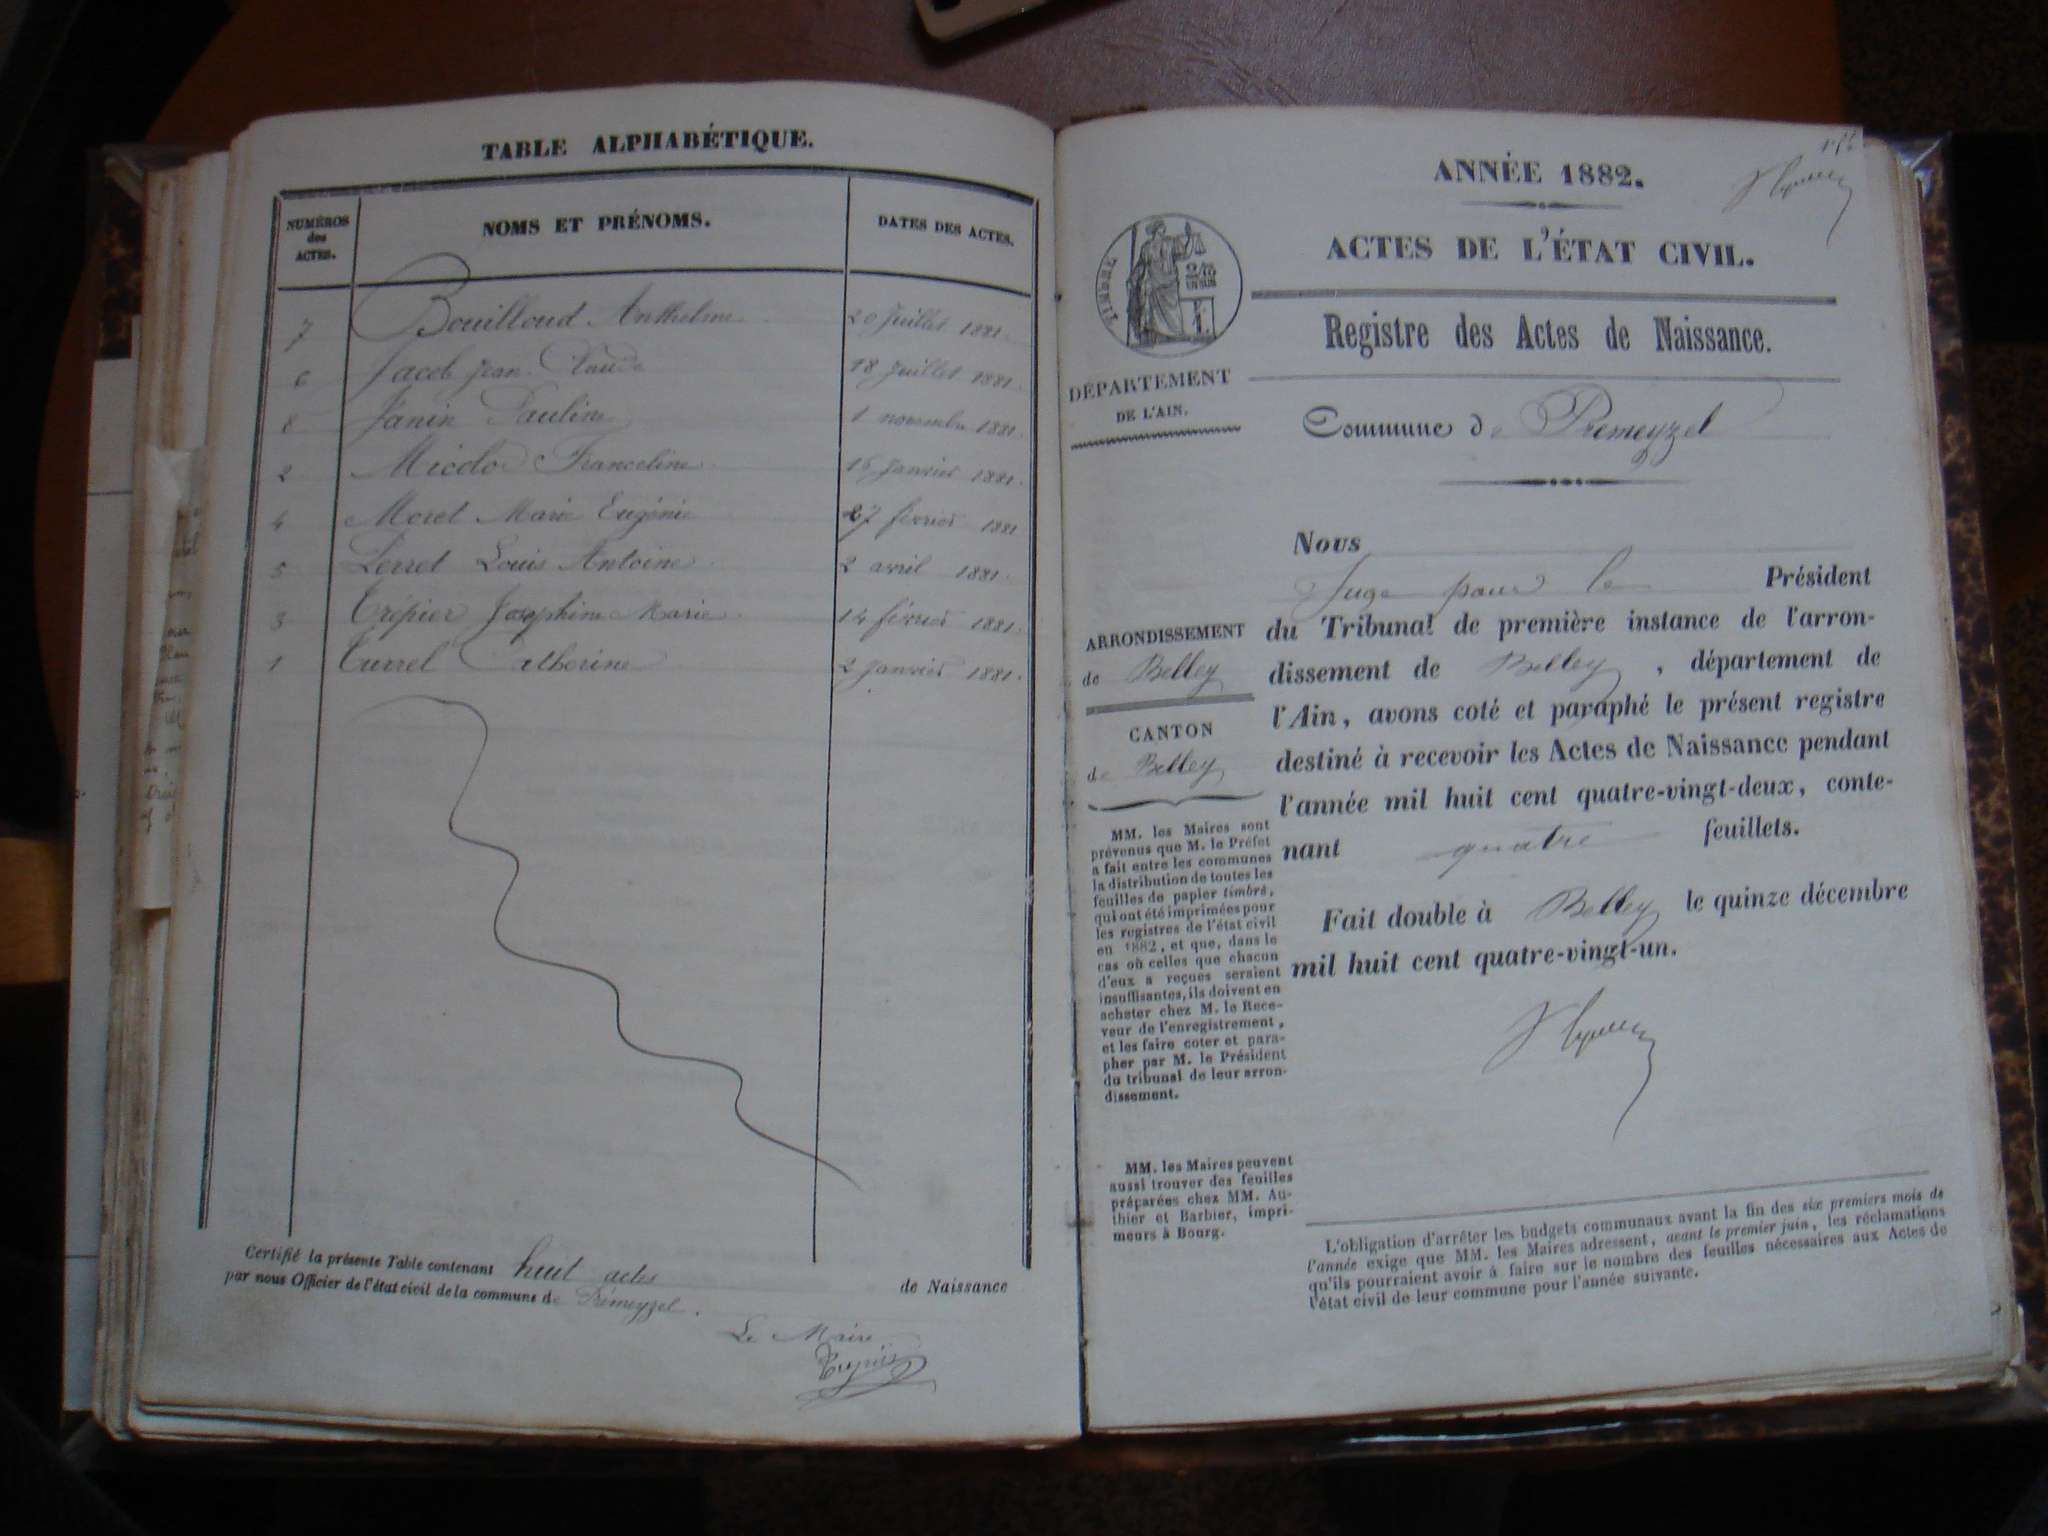 TABLE ALPHABÉTIQUE.
NUMÉROS des ACTES.
NOMS ET PRÉNOMS.
DATES DES ACTES.
7 Bouilloud Anthelme 20 Juillet 1881.
6 Jacob Jean Claude 18 Juillet 1881.
8 Janin Pauline 1 novembre 1881.
2 Miclo Franceline 16 Janvier 1881.
4 Moret Marie Eugénie 27 février 1881
5 Perret Louis Antoine 2 avril 1881.
3 Trépier Joséphine Marie 14 février 1881.
1 Turrel Catherine 2 Janvier 1881.
Certifié la présente Table contenant huit actes de Naissance
par nous Officier de l'état civil de la commune de Prémeyzel.
Le Maire
ANNÉE 1882.
ACTES DE L'ÉTAT CIVIL.
TIMBRE
Registre des Actes de Naissance.
DÉPARTEMENT
DE L'AIN.
Commune de Prémeyzel
ARRONDISSEMENT
de Belley
CANTON
de Belley
MM. les Maires sont
prévenus que M. le Préfet
a fait entre les communes
la distribution de toutes les
feuilles de papier timbré,
qui ont été imprimées pour
les registres de l'état civil
en 1882, et que, dans le
cas où celles que chacun
d'eux a reçues seraient
insuffisantes, ils doivent en
acheter chez M. le Rece-
veur de l'enregistrement,
et les faire coter et para-
pher par M. le Président
du tribunal de leur arron-
dissement.
MM. les Maires peuvent
aussi trouver des feuilles
préparées chez MM. Au-
thier et Barbier, impri-
meurs à Bourg.
Nous
Juge pour le Président
du Tribunal de première instance de l'arron-
dissement de Belley, département de
l'Ain, avons coté et paraphé le présent registre
destiné à recevoir les Actes de Naissance pendant
l'année mil huit cent quatre-vingt-deux, conte-
nant quatre feuillets.
Fait double à Belley le quinze décembre
mil huit cent quatre-vingt-un.
L'obligation d'arrêter les budgets communaux avant la fin des six premiers mois de
l'année exige que MM. les Maires adressent, avant le premier juin, les réclamations
qu'ils pourraient avoir à faire sur le nombre des feuilles nécessaires aux Actes de
l'état civil de leur commune pour l'année suivante.